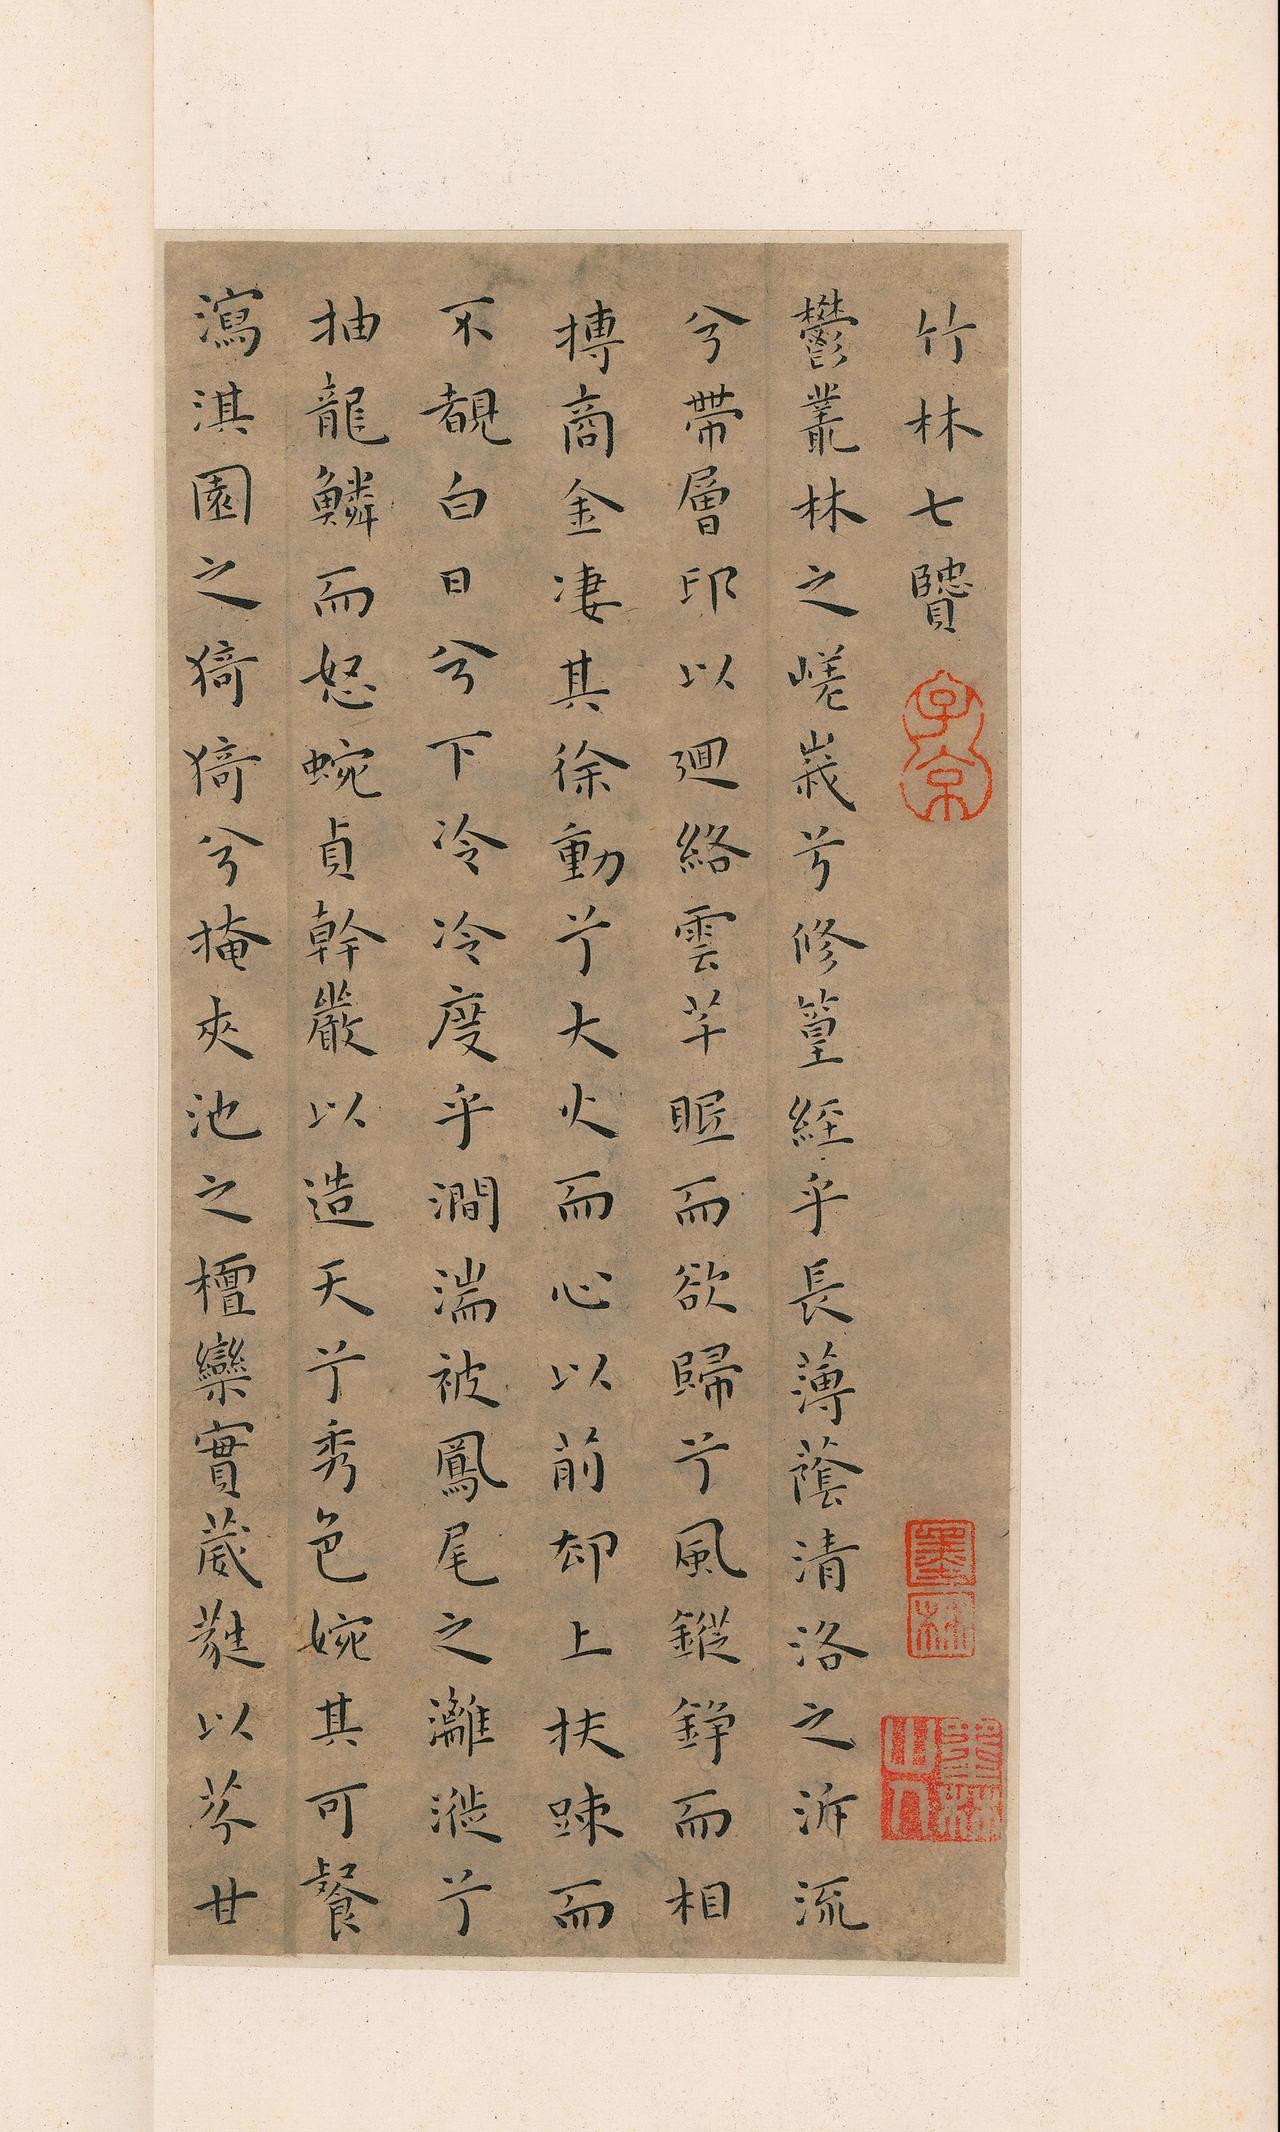 竹林七贒
鬱叢林之嵯峩兮修篁經乎長薄蔭清洛之泝流
兮帶層邙以迴絡雲芊眠而欲歸兮風鏦錚而相
搏商金凄其徐動兮大火而心以前却上扶踈而
不覩白日兮下泠泠度乎澗湍被鳳尾之灕漇兮
抽龍鱗而怒蜿貞幹嚴以造天兮秀色婉其可餐
瀉淇園之猗猗兮掩夾池之檀欒實葳蕤以芬甘
子京
墨林
墨林山人